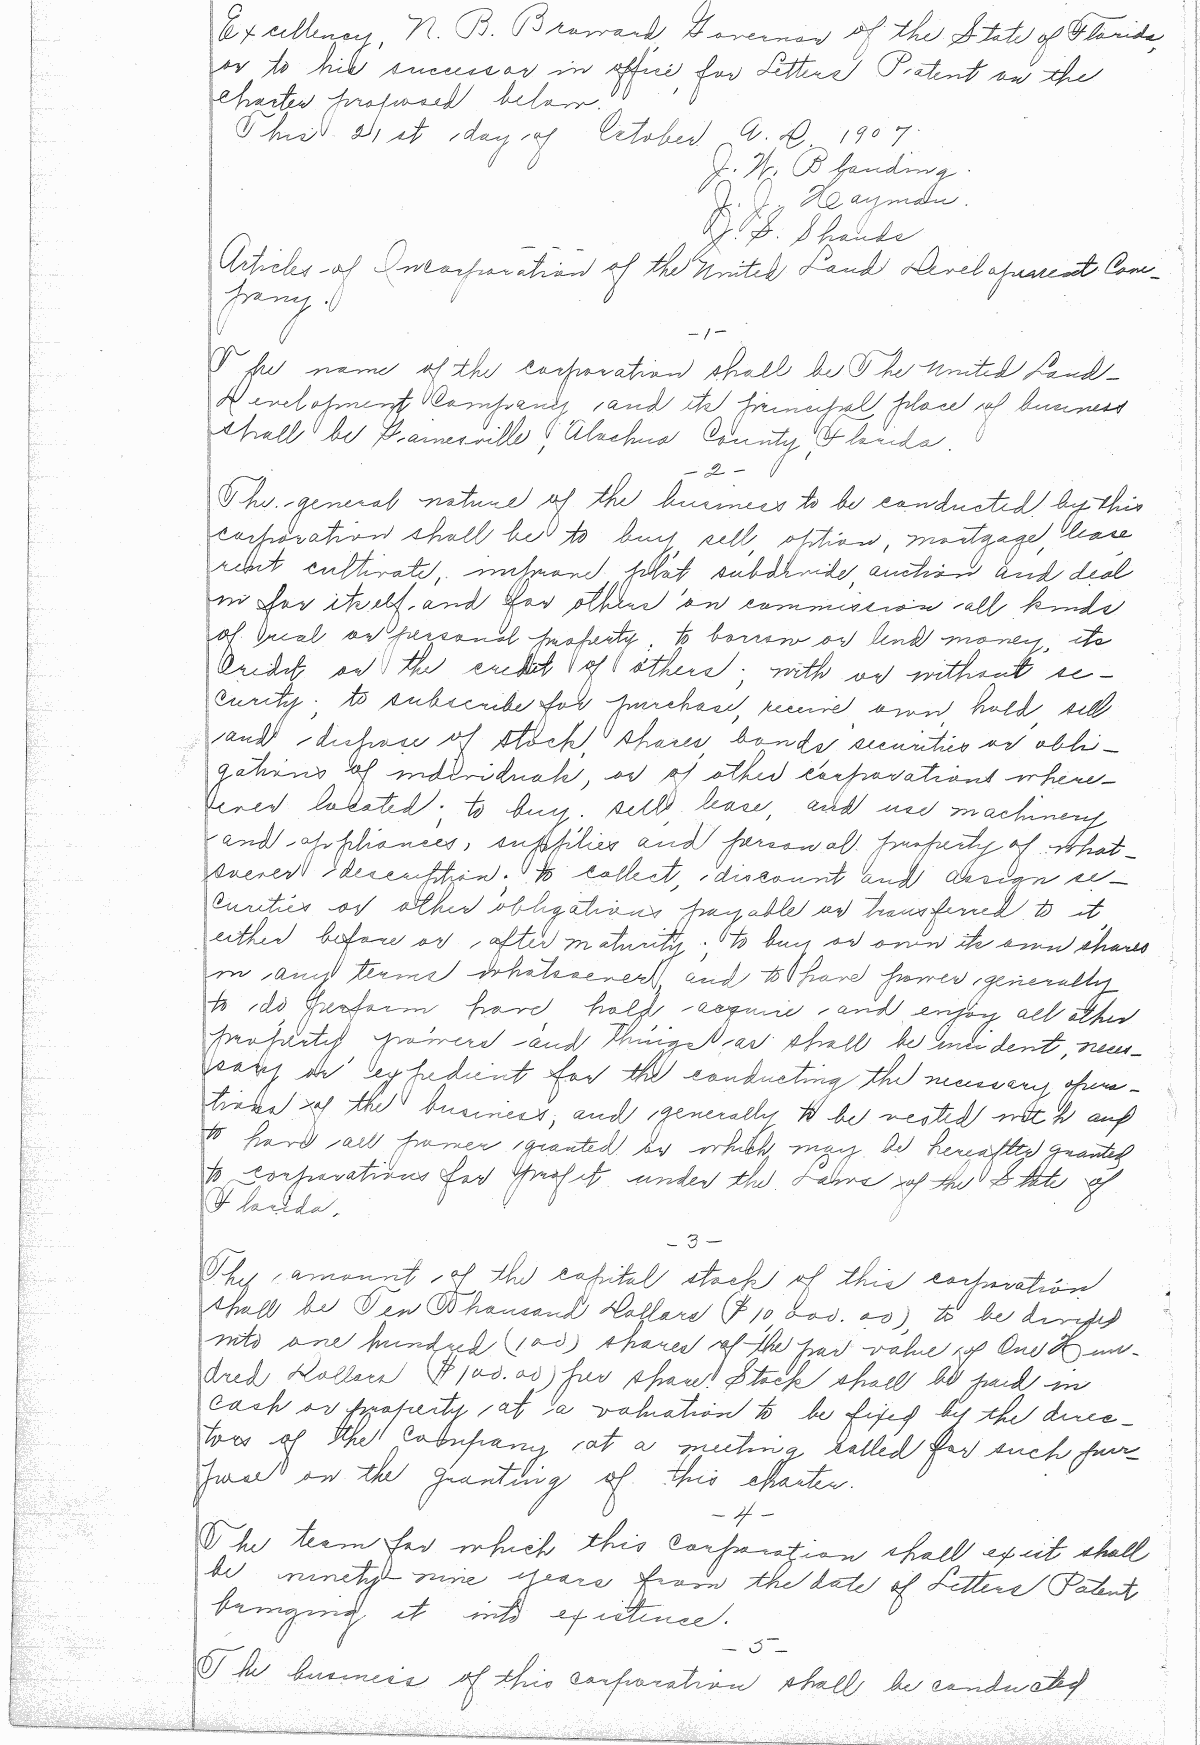 Excellency, N. B. Broward, Governor of the State of Florida,
or to his successor in office, for Letters Patent on the
charter proposed below.
This 21st day of October A. D. 1907.
J. W. Blanding.
J. J. Hayman.
J. S. Shands
Articles of Incorporation of the United Land Development Com-
pany.
-1-
The name of the corporation shall be The United Land
Development Company, and its principal place of business
shall be Gainesville, Alachua County, Florida.
-2-
The general nature of the business to be conducted by this
corporation shall be to buy, sell, option, mortgage, lease,
rent cultivate, improve, plat subdivide, auction and deal
in for itself and for others on commission all kinds
of real or personal property; to borrow or lend money, its
credit or the credit of others; with or without se-
curity; to subscribe for purchase, receive, own, hold, sell
and dispose of stock, shares, bonds securities or obli-
gations of individuals, or of other corporations where-
ever located; to buy, sell, lease, and use machinery
and appliances, supplies and personal property of what-
soever description; to collect, discount and assign se-
curities or other obligations payable or transferred to it,
either before or after maturity; to buy or own its own shares
on any terms whatsoever, and to have power generally
to do perform have hold acquire and enjoy all other
property powers and things as shall be incident, neces-
sary or expedient for the conducting the necessary opera-
tions of the business, and generally to be vested with and
to have all power granted or which may be hereafter granted
to corporations for profit under the Laws of the State of
Florida.
-3-
The amount of the capital stock of this corporation
shall be Ten Thousand Dollars ($10,000.00), to be divided
into one hundred (100) shares of the par value of One Hun-
dred Dollars ($100.00) per share. Stock shall be paid in
cash or property at a valuation to be fixed by the direc-
tors of the company at a meeting called for such pur-
pose on the granting of this charter.
-4-
The team for which this corporation shall exist shall
be ninety-nine years from the date of Letters Patent
bringing it into existence.
-5-
The business of this corporation shall be conducted